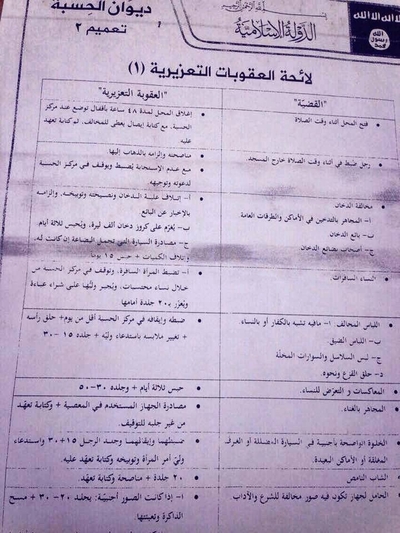 لا إله إلا الله
الله
رسول
محمد
الدولة الإسلامية
ديوان الحسبة
تعميم ٢
لائحة العقوبات التعزيرية (١)
"القضيّة"
"العقوبة التعزيرية"
فتح المحل أثناء وقت الصلاة
إغلاق المحل لمدة ٤٨ ساعة بأقفال توضع عند مركز
الحسبة، مع كتابة إيصال يعطى للمخالف، ثم كتابة تعهد
عليه
رجل ضبط في أثناء وقت الصلاة خارج المسجد
مناصحته وإلزامه بالذهاب إليها
مع عدم الاستجابة يُضبط ويوقف في مركز الحسبة
لدعوته وتوجيهه
مخالفة الدخان
أ- المجاهر بالتدخين في الأماكن والطرقات العامة
ب- بائع الدخان
ج- أصحاب بضائع الدخان
أ- إتلاف علبة الدخان ونصيحته وتوبيخه، وإلزامه
بالإخبار عن البائع
ب- يُغرّم على كروز دخان ألف ليرة، ويُحبس ثلاثة أيام.
ج- مصادرة السيارة التي تحمل البضاعة إن كانت له،
وإتلاف الكميات + حبس ١٥ يوماً
النساء السافرات.
أ- تضبط المرأة السافرة، وتوقف في مركز الحسبة من
خلال نساء محتسبات، ويُجبر وليّها على شراء عباءة
ويُعزّر بـ٢٠ جلدة أمامها
اللباس المخالف أ- مافيه تشبه بالكفار أو بالنساء.
ب- اللباس الضيق
ج- لبس السلاسل والسوارات المخلّة
د- حلق القزع ونحوه.
ضبطه وإيقافه في مركز الحسبة أقل من يوم+ حلق رأسه
+ تغيير ملابسه باستدعاء وليّه + جلده ١٥-٣٠
المعاكسات و التعرّض للنساء.
حبس ثلاثة أيام + وجلده ٣٠-٥٠
المجاهر بالغناء.
مصادرة الجهاز المستخدم في المعصية + وكتابة تعهّد
من غير جلبه للتوقيف.
الخلوة الواضحة بأجنبية في السيارة المضللة أو الغرف
المغلقة أو الأماكن البعيدة.
ضبطهما وإيقافهما وجلد الرجل ١٥+٣٠ واستدعاء
وليّ أمر المرأة وتوبيخه وكتابة تعهّد عليه.
الشاب النامص
٢٠ جلدة + مناصحة وكتابة تعهد
الحامل لجهاز تكون فيه صور مخالفة للشرع والآداب
أ- إذا كانت الصور أجنبيّة: يجلد ٢٠- ٣٠ + مسح
الذاكرة